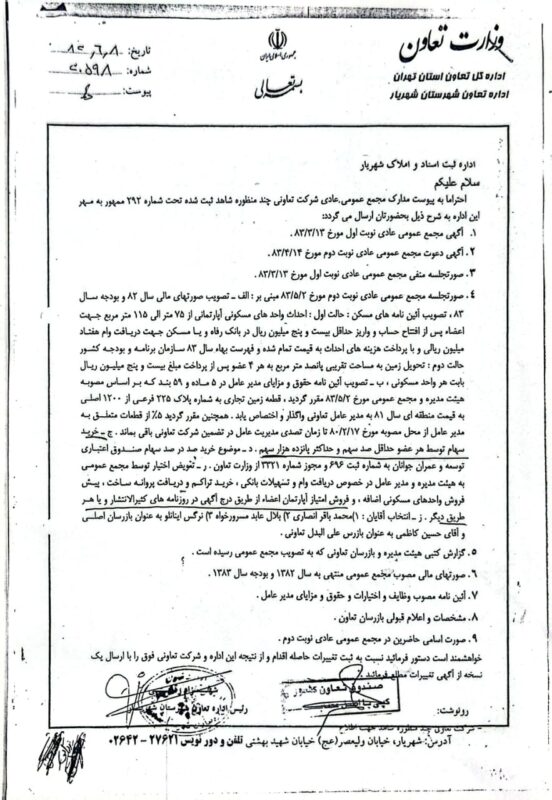 وزارت تعاون
اداره کل تعاون استان تهران
اداره تعاون شهرستان شهریار
جمهوری اسلامی ایران
بسمه تعالی
تاریخ: ۸۳,۶,۸
شماره: ۲۰۵۹۸
پیوست:
اداره ثبت اسناد و املاک شهریار
سلام علیکم
احتراما به پیوست مدارک مجمع عمومی عادی شرکت تعاونی چند منظوره شاهد ثبت شده تحت شماره ۲۹۲ ممهور به مهر
این اداره به شرح ذیل بحضورتان ارسال می گردد:
۱. آگهی مجمع عمومی عادی نوبت اول مورخ ۸۳/۳/۱۳ .
۲. آگهی دعوت مجمع عمومی عادی نوبت دوم مورخ ۸۳/۴/۱۴ .
۳. صورتجلسه منفی مجمع عمومی عادی نوبت اول مورخ ۸۳/۳/۱۳ .
۴. صورتجلسه مجمع عمومی عادی نوبت دوم مورخ ۸۳/۵/۲ مبنی بر : الف ـ تصویب صورتهای مالی سال ۸۲ و بودجه سال
۸۳ ، تصویب آئین نامه های مسکن : حالت اول : احداث واحد های مسکونی آپارتمانی از ۷۵ متر الی ۱۱۵ متر مربع جهت
اعضاء پس از افتتاح حساب و واریز حداقل بیست و پنج میلیون ریال در بانک رفاه و یا مسکن جهت دریافت وام هفتاد
میلیون ریالی و با پرداخت هزینه های احداث به قیمت تمام شده و فهرست بهاء سال ۸۳ سازمان برنامه و بودجه کشور
حالت دوم : تحویل زمین به مساحت تقریبی پانصد متر مربع به هر ۴ عضو پس از پرداخت مبلغ بیست و پنج میلیون ریال
بابت هر واحد مسکونی ، ب ـ تصویب آئین نامه حقوق و مزایای مدیر عامل در ۵ ماده و ۵۹ بند که بر اساس مصوبه
هیئت مدیره و مجمع عمومی مورخ ۸۳/۵/۲ مقرر گردید ، قطعه زمین تجاری به شماره پلاک ۲۲۵ فرعی از ۱۲۰۰ اصلی
به قیمت منطقه ای سال ۸۱ به مدیر عامل تعاونی واگذار و اختصاص یابد . همچنین مقرر گردید ۵٪ از قطعات متعلق به
مدیر عامل از محل مصوبه مورخ ۸۰/۲/۱۷ تا زمان تصدی مدیریت عامل در تضمین شرکت تعاونی باقی بماند . ج ـ خرید
سهام توسط هر عضو حداقل صد سهم و حداکثر پانزده هزار سهم . د ـ موضوع خرید صد در صد سهام صندوق اعتباری
توسعه و عمران جوانان به شماره ثبت ۶۹۶ و مجوز شماره ۳۳۲۱ از وزارت تعاون . ر ـ تفویض اختیار توسط مجمع عمومی
به هیئت مدیره و مدیر عامل در خصوص دریافت وام و تسهیلات بانکی ، خرید تراکم و دریافت پروانه ساخت ، پیش
فروش واحدهای مسکونی اضافه ، و فروش امتیاز آپارتمان اعضاء از طریق درج آگهی در روزنامه های کثیرالانتشار و یا هر
طریق دیگر . ز ـ انتخاب آقایان : ۱)محمد باقر انصاری ۲) بلال عابد مسرورخواه ۳) نرگس اینانلو به عنوان بازرسان اصلی
و آقای حسین کاظمی به عنوان بازرس علی البدل تعاونی .
۵ . گزارش کتبی هیئت مدیره و بازرسان تعاونی که به تصویب مجمع عمومی رسیده است .
۶ . صورتهای مالی مصوب مجمع عمومی منتهی به سال ۱۳۸۲ و بودجه سال ۱۳۸۳ .
۷ . آئین نامه مصوب وظایف و اختیارات و حقوق و مزایای مدیر عامل .
۸ . مشخصات و اعلام قبولی بازرسان تعاون .
۹ . صورت اسامی حاضرین در مجمع عمومی عادی نوبت دوم .
خواهشمند است دستور فرمائید نسبت به ثبت تغییرات حاصله اقدام و از نتیجه این اداره و شرکت تعاونی فوق را با ارسال یک
نسخه از آگهی تغییرات مطلع فرمائید .
رئیس اداره تعاون شهرستان شهریار
صندوق تعاون کشور
رونوشت:
آدرس: شهریار، خیابان ولیعصر(عج) خیابان شهید بهشتی تلفن و دور نویس ۲۷۶۲۱ – ۰۲۶۴۲